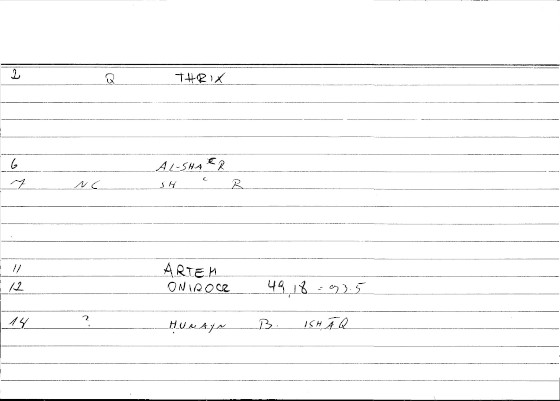 2 Q THRIX
6 AL-SHAʿR
7 NC SH ʿ R
11 ARTEM
12 ONIROCR 49,18 = 93.5
14 ? ḤUNAYN B. ISHĀQ